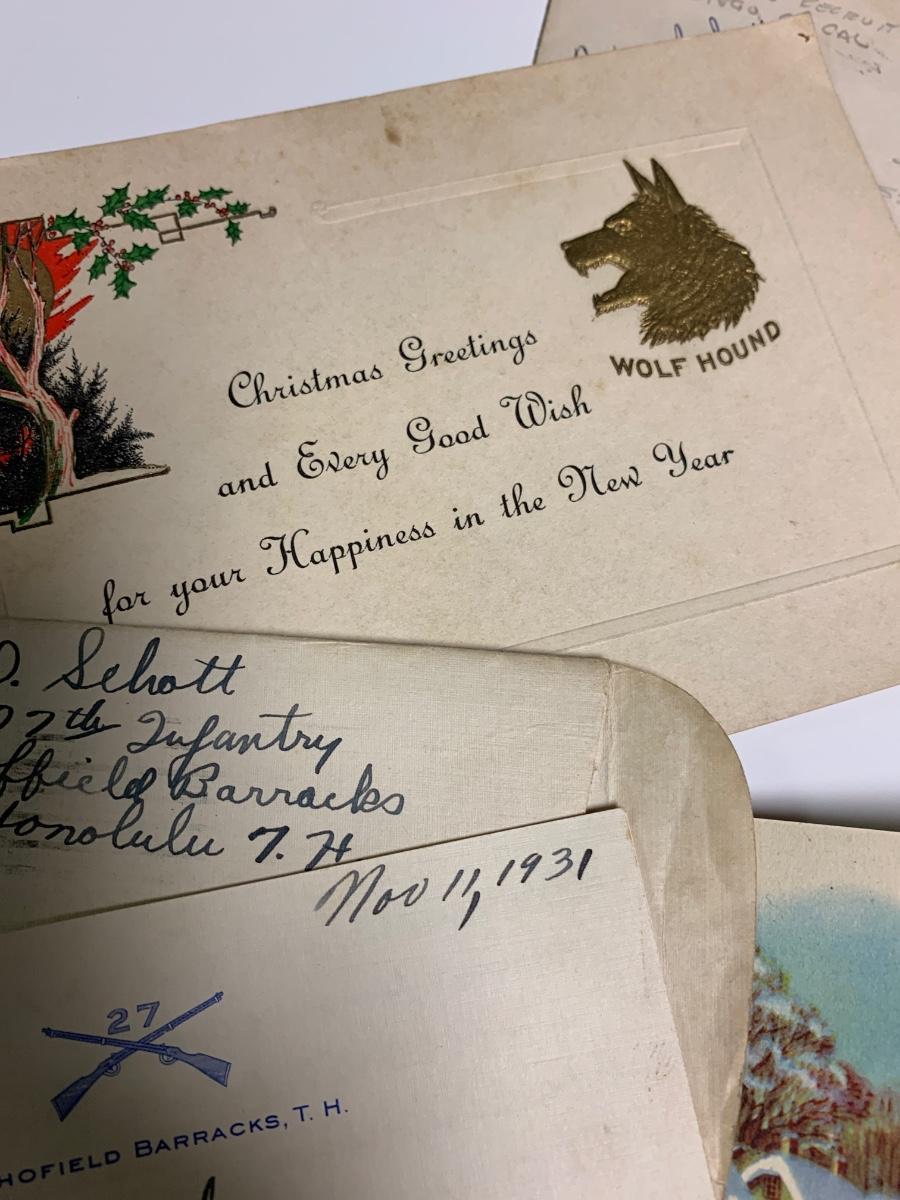 RECRUIT
CAL
WOLF HOUND
Christmas Greetings
and Every Good Wish
for your Happiness in the New Year
D. Schott
7th Infantry
ffield Barracks
onolulu T. H
Nov 11, 1931
27
HOFIELD BARRACKS, T. H.